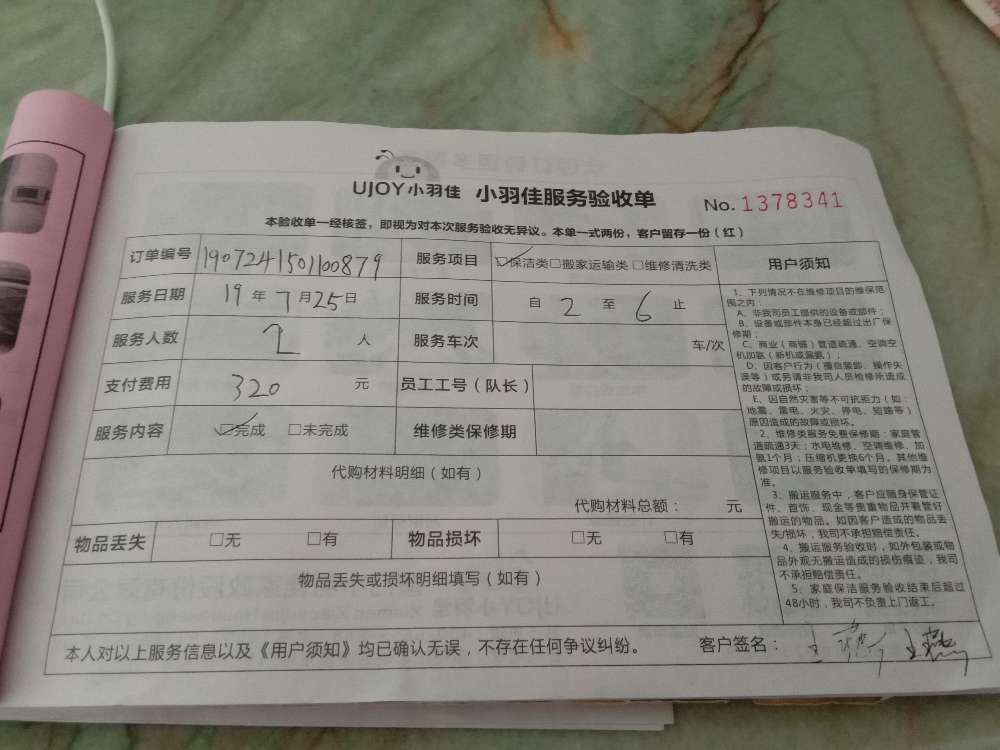 UJOY小羽佳 小羽佳服务验收单 No. 1378341
本验收单一经核签，即视为对本次服务验收无异议。本单一式两份，客户留存一份（红）
订单编号 1907241501100879 服务项目 ☑保洁类□搬家运输类□维修清洗类
服务日期 19年7月25日 服务时间 自2至6止
服务人数 2人 服务车次 车/次
支付费用 320元 员工工号（队长）
服务内容 ☑完成 □未完成 维修类保修期
代购材料明细（如有）
代购材料总额： 元
物品丢失 □无 □有 物品损坏 □无 □有
物品丢失或损坏明细填写（如有）
用户须知
1、下列情况不在维修项目的维保范
围之内：
A、非我司员工提供的设备或部件；
B、设备或部件本身已经超过出厂保
修期；
C、商业（商铺）管道疏通、空调空
机加氨（新机或漏氨）；
D、因客户行为（擅自装卸、操作失
误等）或另请非我司人员检修所造成
的故障或损坏；
E、因自然灾害等不可抗拒力（如：
地震、雷电、火灾、停电、短路等）
原因造成的故障或损坏。
2、维修类服务免费保修期：家庭管
道疏通3天；水电维修、空调维修、加
氨1个月；压缩机更换6个月。其他维
修项目以服务验收单填写的保修期为
准。
3、搬运服务中，客户应随身保管证
件、首饰、现金等贵重物品并看管好
搬运的物品。如因客户造成的物品丢
失/损坏，我司不承担赔偿责任。
4、搬运服务验收时，如外包装或物
品外观无搬运造成的损伤痕迹，我司
不承担赔偿责任。
5、家庭保洁服务验收结束后超过
48小时，我司不负责上门返工。
本人对以上服务信息以及《用户须知》均已确认无误，不存在任何争议纠纷。 客户签名：